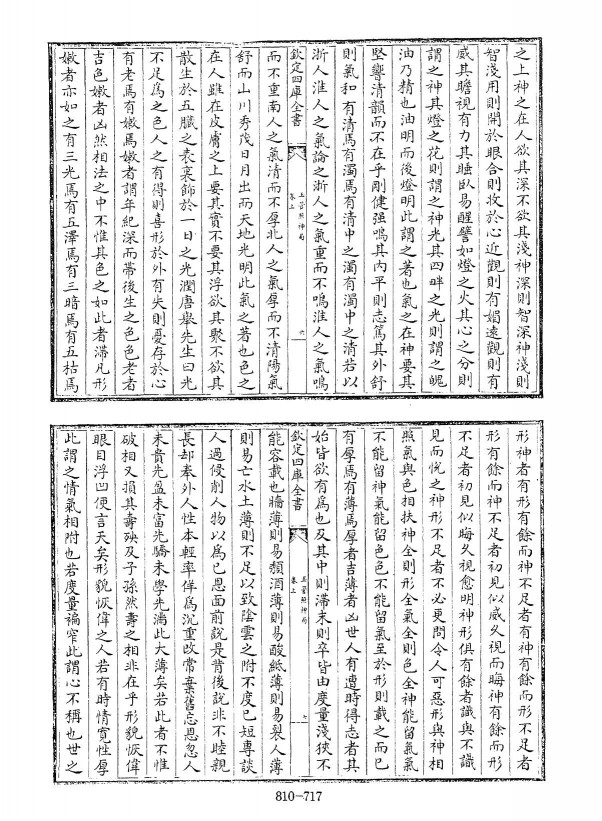 之上神之在人欲其深不欲其淺神深則智深神淺則
智淺用則開於眼合則收於心近觀則有媚遠觀則有
威其瞻視有力其睡臥易醒譬如燈之火其心之分則
謂之神其燈之花則謂之神光其四畔之光則謂之魄
油乃精也油明而後燈明此謂之著也氣之在神要其
堅響清韻而不在乎剛健强鳴其内平則志篤其外舒
則氣和有清焉有濁焉有清中之濁有濁中之清若以
浙人淮人之氣論之浙人之氣重而不鳴淮人之氣鳴
欽定四庫全書
玉管照神局
卷上
六
而不重南人之氣清而不厚北人之氣厚而不清陽氣
舒而山川秀茂日月出而天地光明此氣之著也色之
在人雖在皮膚之上要其實不要其浮欲其聚不欲其
散生於五臟之表裏飾於一日之光潤唐舉先生曰光
不足為之色人之有得則喜形於外有失則憂存於心
有老焉有嫩焉嫩者謂年紀深而帶後生之色色老者
吉色嫩者凶然相法之中不惟其色之如此者滯凡形
嫩者亦如之有三光焉有五澤焉有三暗焉有五枯焉
形神者有形有餘而神不足者有神有餘而形不足者
形有餘而神不足者初見似威久視而晦神有餘而形
不足者初見似晦久視愈明神形俱有餘者識與不識
見而悦之神形不足者不必更問令人可惡形與神相
照氣與色相扶神全則形全氣全則色全神能留氣氣
不能留神氣能留色色不能留氣至於形則載之而已
有厚焉有薄焉厚者吉薄者凶世人有遭時得志者其
始皆欲有為也及其中則滯末則卒皆由度量淺狹不
欽定四庫全書
玉管照神局
卷上
七
能容載也牆薄則易頽酒薄則易酸紙薄則易裂人薄
則易亡水土薄則不足以致陰雲之附不度已短專談
人過侵削人物以為已恩面前說是背後說非不睦親
長却奉外人性本輕率佯為沉重改常棄舊忘恩忽人
未貴先盈未富先驕未學先滿此大薄矣若此者不惟
破相又損其壽殃及子孫然壽之相非在乎形貌恢偉
眼目浮凹便言夭矣形貌恢偉之人若有時情寛性厚
此謂之情氣相附也若度量褊窄此謂心不稱也世之
810-717